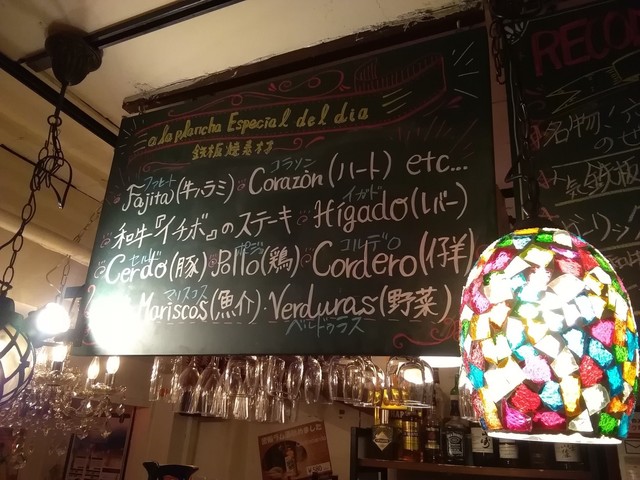 a la plancha Especial del dia
鉄板焼き
コラソン
Fajita(牛ハラミ) Corazòn(ハート) etc...
イガド
和牛『イチボ』のステーキ Hígado(レバー)
セルド コルデロ
Cerdo(豚) Pollo(鶏) Cordero(仔羊)
マリスコス
Mariscos(魚介)・Verduras(野菜)
ベルドゥラス
RECO
名物
鉄板